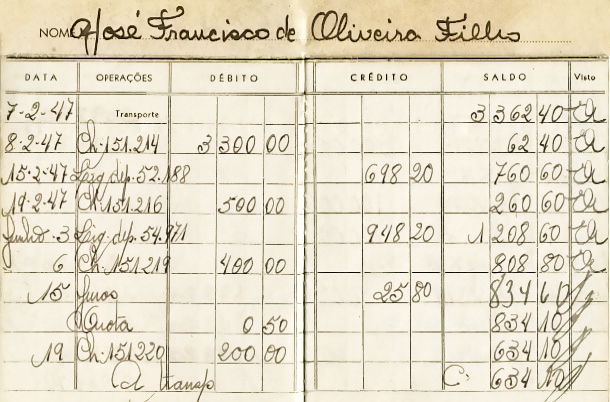 NOME José Francisco de Oliveira Filho
DATA OPERAÇÕES DÉBITO CRÉDITO SALDO Visto
7-2-47 Transporte 3 362 40
8-2-47 Ch. 151.214 3 300 00 62 40
15-2-47 dep. 52.188 698 20 760 60
19-2-47 Ch. 151.216 500 00 260 60
Junho-3 dep. 54.971 948 20 1 208 60
6 Ch. 151219 400 00 808 80
15 Juros 25 80 834 60
Quota 0 50 834 10
19 Ch. 151220 200 00 634 10
A transp C. 634